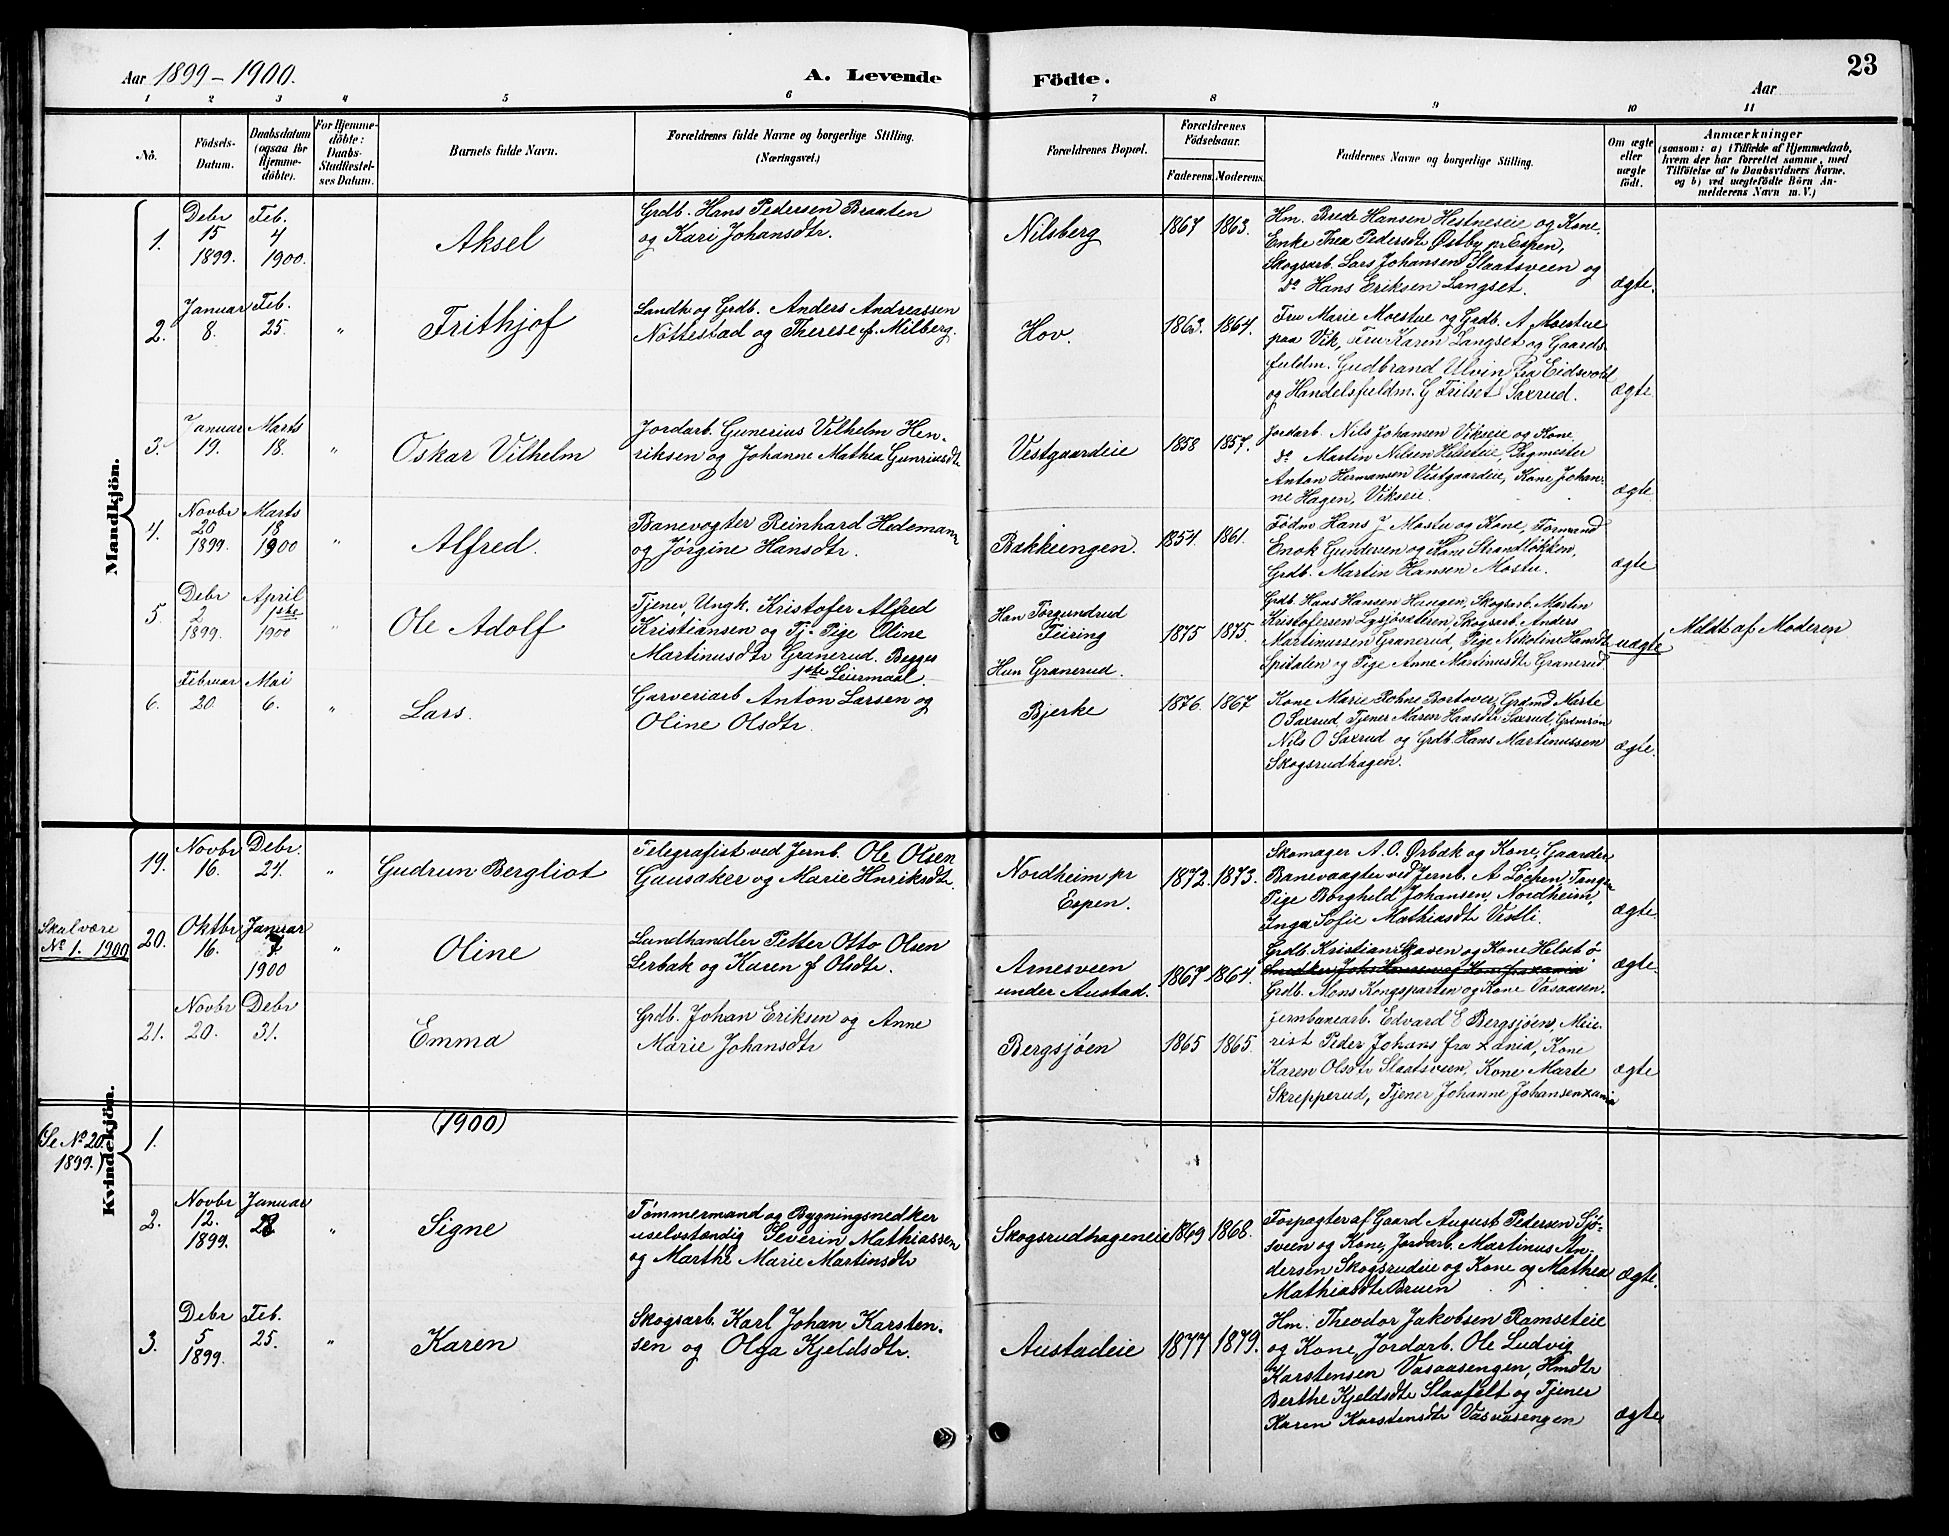 Aar 1899-1900.
A. Levende
Födte.
Aar
23
1 2 3 4 5 6 7 8 9 10 11
Nô.
Födsels-Datum.
Daabsdatum (ogsaa for Hjemmedöbte).
For Hjemmedöbte: Daabs-Stadfæstelses Datum.
Barnets fulde Navn.
Forældrenes fulde Navne og borgerlige Stilling. (Næringsvei.)
Forældrenes Bopæl.
Forældrenes Födselsaar.
Faderens. Moderens.
Faddernes Navne og borgerlige Stilling.
Om ægte eller uægte födt.
Anmærkninger
(saasom: a) i Tilfælde af Hjemmedaab,
hvem der har forrettet samme, med
Tilföielse af to Daabsvidners Navne,
og b) ved uægtefödte Börn Anmelderens Navn m. V.)
Mandkjön.
1.
Debr 15 1899.
Feb. 4 1900.
Aksel
Grdb. Hans Pedersen Braaten
og Kari Johansdtr.
Nilsberg
1867 1863.
Hm. Brede Hansen Hestneseie og Kone,
Enke Thea Pedersdtr Østby pr Espen,
Skogsarb. Lars Johansen Slaatsveen og
do Hans Eriksen Langset.
ægte.
2.
Januar 8.
Feb. 25.
"
Frithjof
Landh og Grdb. Anders Andreassen
Nøttestad og Therese f. Milberg.
Hov.
1863. 1864.
Fru Marie Moestue og Grdb. A Moestue
paa Vik, Fru Karen Langset og Gaards-
fuldm. Gudbrand Ulvin fra Eidsvold
og Handelsfuldm. G Frilset Saxrud.
ægte
3.
Januar 19.
Marts 18.
"
Oskar Vilhelm
Jordarb. Gunerius Vilhelm Hen-
riksen og Johanne Mathea Gunriusdtr
Vestgaardeie
1858 1857.
Jordarb. Nils Johansen Vikseie og Kone,
do Martin Nilsen Helseteie, Pigmester
Anton Hermansen Vestgaardeie, Kone Johan-
ne Hagen, Vikseie.
ægte
4.
Novbr 20 1899.
Marts 18 1900
"
Alfred.
Banevogter Reinhard Hedemann
og Jørgine Hansdtr.
Bakkeengen.
1854. 1861.
Fødm Hans J Mostu og Kone, Formand
Enok Gundersen og Kone Strandløkken,
Grdb. Martin Hansen Mostu.
ægte
5
Debr 2 1899.
April 1ste 1900
"
Ole Adolf
Tjener, Ungk. Kristofer Alfred
Kristiansen og Tj. Pige Oline
Martinusdtr Granerud. Begges
1ste Leiermaal.
Han Torgundrud
Feiring
Hun Granerud.
1875 1875.
Grdb. Hans Hansen Haugen, Skogsarb. Martin
Kristofersen Lysjøsæteren, Skogsarb. Anders
Martinussen Granerud, Pige Nikoline Hansdtr
Spitalen og Pige Anne Martinusdtr Granerud
uægte
Meldt af Moderen
6.
Februar 20.
Mai 6.
"
Lars.
Garveriarb Anton Larsen og
Oline Olsdtr.
Bjerke
1876. 1867
Kone Marie
Marte
O Saxrud, Tjener Maren Hansdtr Saxrud, Grdmsøn
Nils O Saxrud og Grdb. Hans Martinussen
Skogsrudhagen.
ægte.
Kvindekjön.
19.
Novbr 16.
Debr. 24.
"
Gudrun Bergliot
Telegrafist ved Jernb. Ole Olsen
Gausaker og Marie Hnriksdtr.
Nordheim, pr
Espen.
1872. 1873.
Skomager A. O. Ørbæk og Kone, Gaarder
Banevaagter ved Jernb. A Løcpen, Tangen
Pige Borghild Johansen, Nordheim,
Inga Sofie Mathiasdtr Vestli.
ægte.
Skal være
No 1. 1900
20.
Oktbr 16.
Januar 7 1900
"
Oline
Landhandler Petter Otto Olsen
Lerbak og Karen f Olsdtr.
Arnesveen
under Austad.
1867 1864.
Grdb. Kristian Skaven og Kone Helsetø
Grdb. Mons Kongsparten og Kone Vasaasen.
ægte.
21.
Novbr 20.
Debr 31.
Emma
Grdb. Johan Eriksen og Anne
Marie Johansdtr
Bergsjøen
1865 1865.
Jernbanearb. Edvard E Bergsjøen, Meie-
rist Peder Johans fra Xania, Kone
Karen Olsdtr Slaatsveen, Kone Marte
Skrepperud, Tjener Johanne Johansen Xania
ægte
(1900)
(Se No 20.
1899.)
1.
2.
Novbr 12. 1899.
Januar 28
"
Signe
Tømmermand og Bygningssnedker
uselvstændig Severin Mathiassen
og Marthe Marie Martinsdtr
Skogsrudhageneie
1869 1868.
Forpagter af Gaard August Petersen Sjø-
sveen og Kone, Jordarb. Martinus An-
dersen Skogsrudeie og Kone og Mathea
Mathiasdtr Bruen
ægte.
3.
Debr 5 1899.
Feb. 25.
"
Karen
Skogsarb. Karl Johan Karsten-
sen og Olga Kjeldsdtr.
Austadeie
1877 1879.
Hm. Theodor Jakobsen Ramseteie
og Kone, Jordarb. Ole Ludvig
Karstensen Vasaasengen, Hmdtr
Berthe Kjeldsdtr Slaafelt og Tjener
Karen Karstensdtr Vasaasengen
ægte